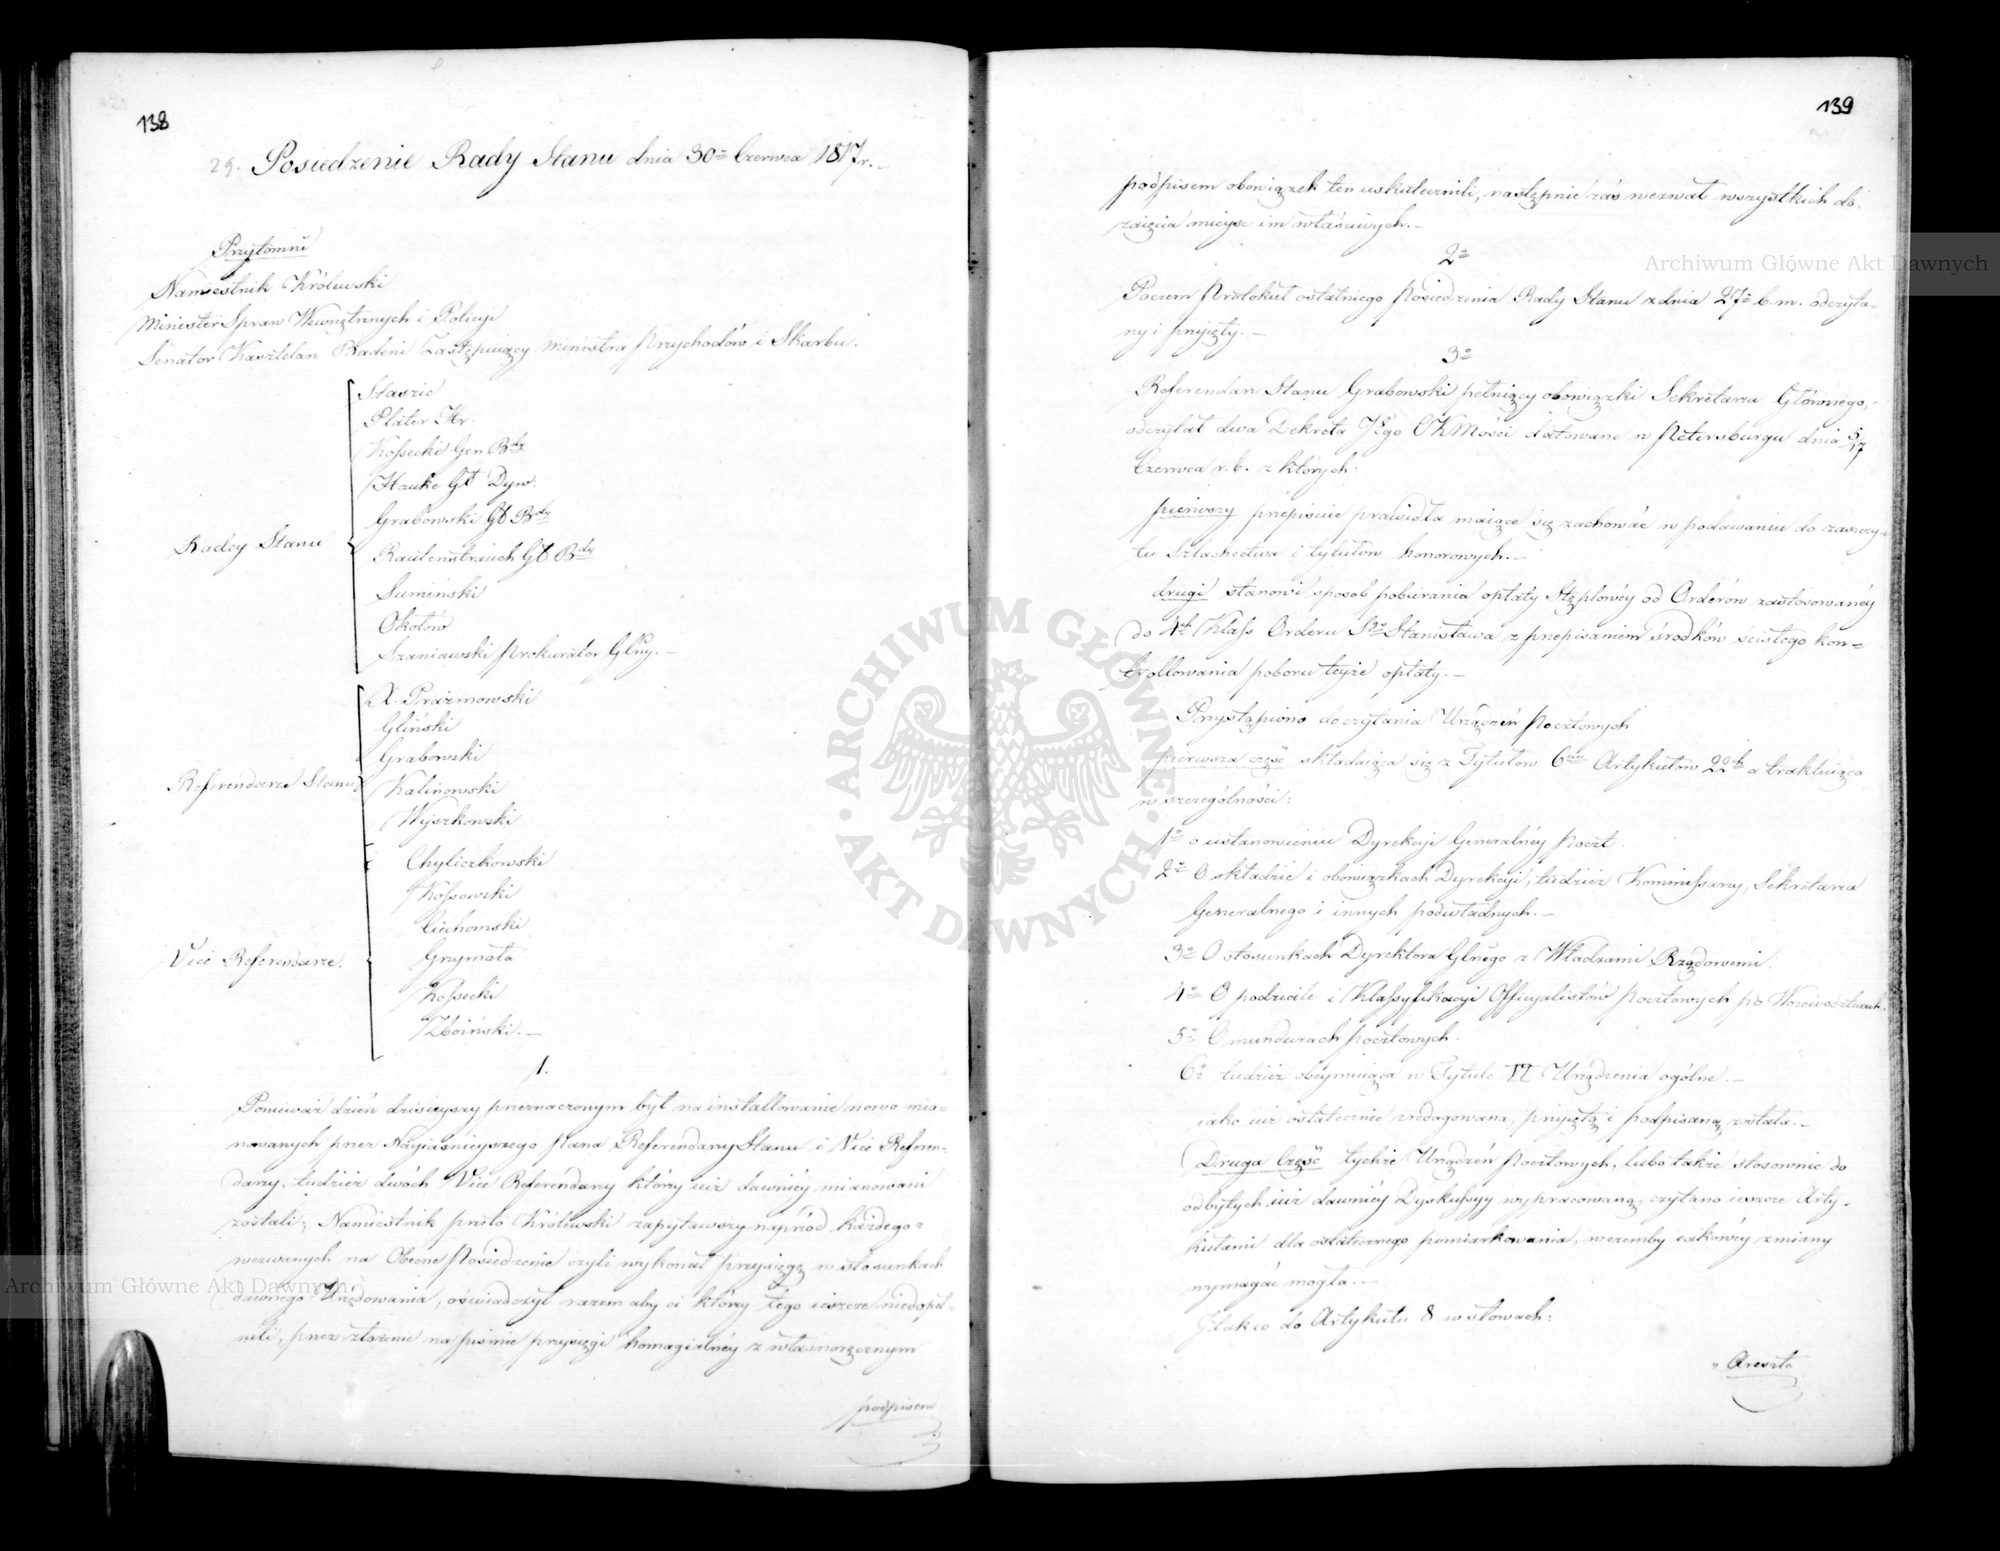 138
29. Posiedzenie Rady Stanu dnia 30º Czerwca 1817 r. –
Przytomni
Namiestnik Królewski
Minister Spraw Wewnętrznych i Policyi
Senator Kasztelan Badeni Zastępuiący Ministra Przychodów i Skarbu.
Radcy Stanu
Staszic
Plater Hr.
Kossecki Gen Bdy
Hauke Gł Dyw.
Grabowski Gł Bdy
Rautenstrauch Gł Bdy
Sumiński
Okołów
Szaniawski Prokurator Glny. –
Referendarze Stanu
X. Prażmowski
Gliński
Grabowski
Kalinowski
Wyszkowski
Vice Referendarze.
Chyliczkowski
Kossowski
Cichomski
Grzymała
Kossecki
Zboiński. –
1.
Ponieważ dzień dzisieyszy przeznaczonym był na installowanie nowo mia=
nowanych przez Nayiaśnieyszego Pana Referendarzy Stanu i Vice Referen=
darzy, tudzież dwóch Vice Referendarzy którzy iuż dawniéy mianowani
zostali; Namiestnik przeto Królewski zapytawszy naprzód każdego z
wezwanych na Obecne Posiedzenie czyli wykonał przysięgę w stosunkach
dawnego Urzędowania, oświadczył razem aby ci którzy tego ieszcze niedopeł=
nili, przez złożenie na piśmie przysięgi homagialnéy z własnoręcznym
podpisem
139
podpisem obowiązek ten uskutecznili, następnie zaś wezwał wszystkich do
zaięcia mieysc im właściwych. –
2º
Poczem Protokuł ostatniego Posiedzenia Rady Stanu z dnia 27º b. m. odczyta=
ny i przyięty. –
3º
Referendarz Stanu Grabowski pełniący obowiązki Sekretarza Głównego,
odczytał dwa Dekreta Jego CKMości datowane w Petersburgu dnia 5/17
Czerwca r. b. z których:
pierwszy przepisuie prawidła maiące się zachować w podawaniu do zaszczy=
tu Szlachectwa i tytułów honorowych. –
drugi stanowi sposób pobierania opłaty Stęplowéy od Orderów zastosowanéy
do 4ch Klass Orderu Sgo Stanisława z przepisaniem środków ścisłego kon=
trollowania poboru teyże opłaty. –
Przystąpiono do czytania Urządzeń Pocztowych
pierwsza część składaiąca się z Tytułów 6ciu Artykułów 22ch a traktuiąca
w szczególności:
1º o ustanowieniu Dyrekcyi Generalnéy Poczt.
2º O składzie i obowiązkach Dyrekcyi, tudzież Kommissarzy, Sekretarza
Generalnego i innych podwładnych. –
3º O stosunkach Dyrektora Glnego z Władzami Rządowemi.
4º O podziale i Klassyfikacyi Officyalistów Pocztowych po Woiewództwach.
5º O mundurach Pocztowych.
6º tudzież obeymuiąca w Tytule VI Urządzenia ogólne. –
iako iuż ostatecznie zredagowana, przyiętą i podpisaną została. –
Druga Część tychże Urządzeń Pocztowych, lubo także stosownie do
odbytych iuż dawniéy Dyskussyy wypracowaną, czytano ieszcze Arty=
kułami dla ostatecznego pomiarkowania, w czemby iakowéy zmiany
wymagać mogła. –
J tak co do Artykułu 8 w słowach:
„Areszta
Archiwum Główne Akt Dawnych
Archiwum Główne Akt Dawnych
· ARCHIWUM GŁÓWNE · AKT DAWNYCH